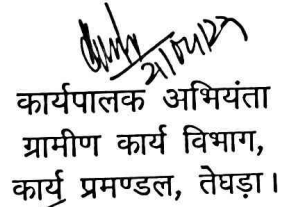 कार्यपालक अभियंता
ग्रामीण कार्य विभाग,
कार्य प्रमण्डल, तेघड़ा।